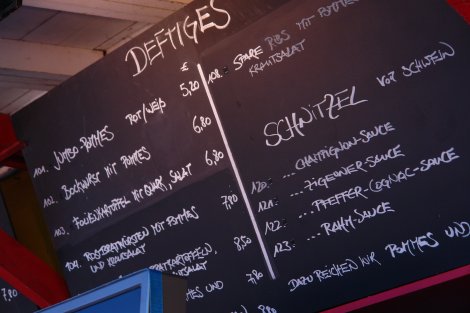 DEFTIGES
€
101. JUMBO-POMMES ROT/WEIß 5,20
102. BOCKWURST MIT POMMES 6,80
103. FOLIENKARTOFFEL MIT QUARK, SALAT 6,80
104. ROSTBRATWÜRSTEN MIT POMMES 7,90
UND KRAUTSALAT
BRATKARTOFFELN, 8,50
KRAUTSALAT
MMES UND 7,90
7,80
108.: SPARE RIBS MIT POMMES
KRAUTSALAT
SCHNITZEL VOM SCHWEIN
120.: ...CHAMPIGNON-SAUCE
121.: ...ZIGEUNER-SAUCE
122.: ...PFEFFER-COGNAC-SAUCE
123.: ...RAHM-SAUCE
DAZU REICHEN WIR POMMES UND